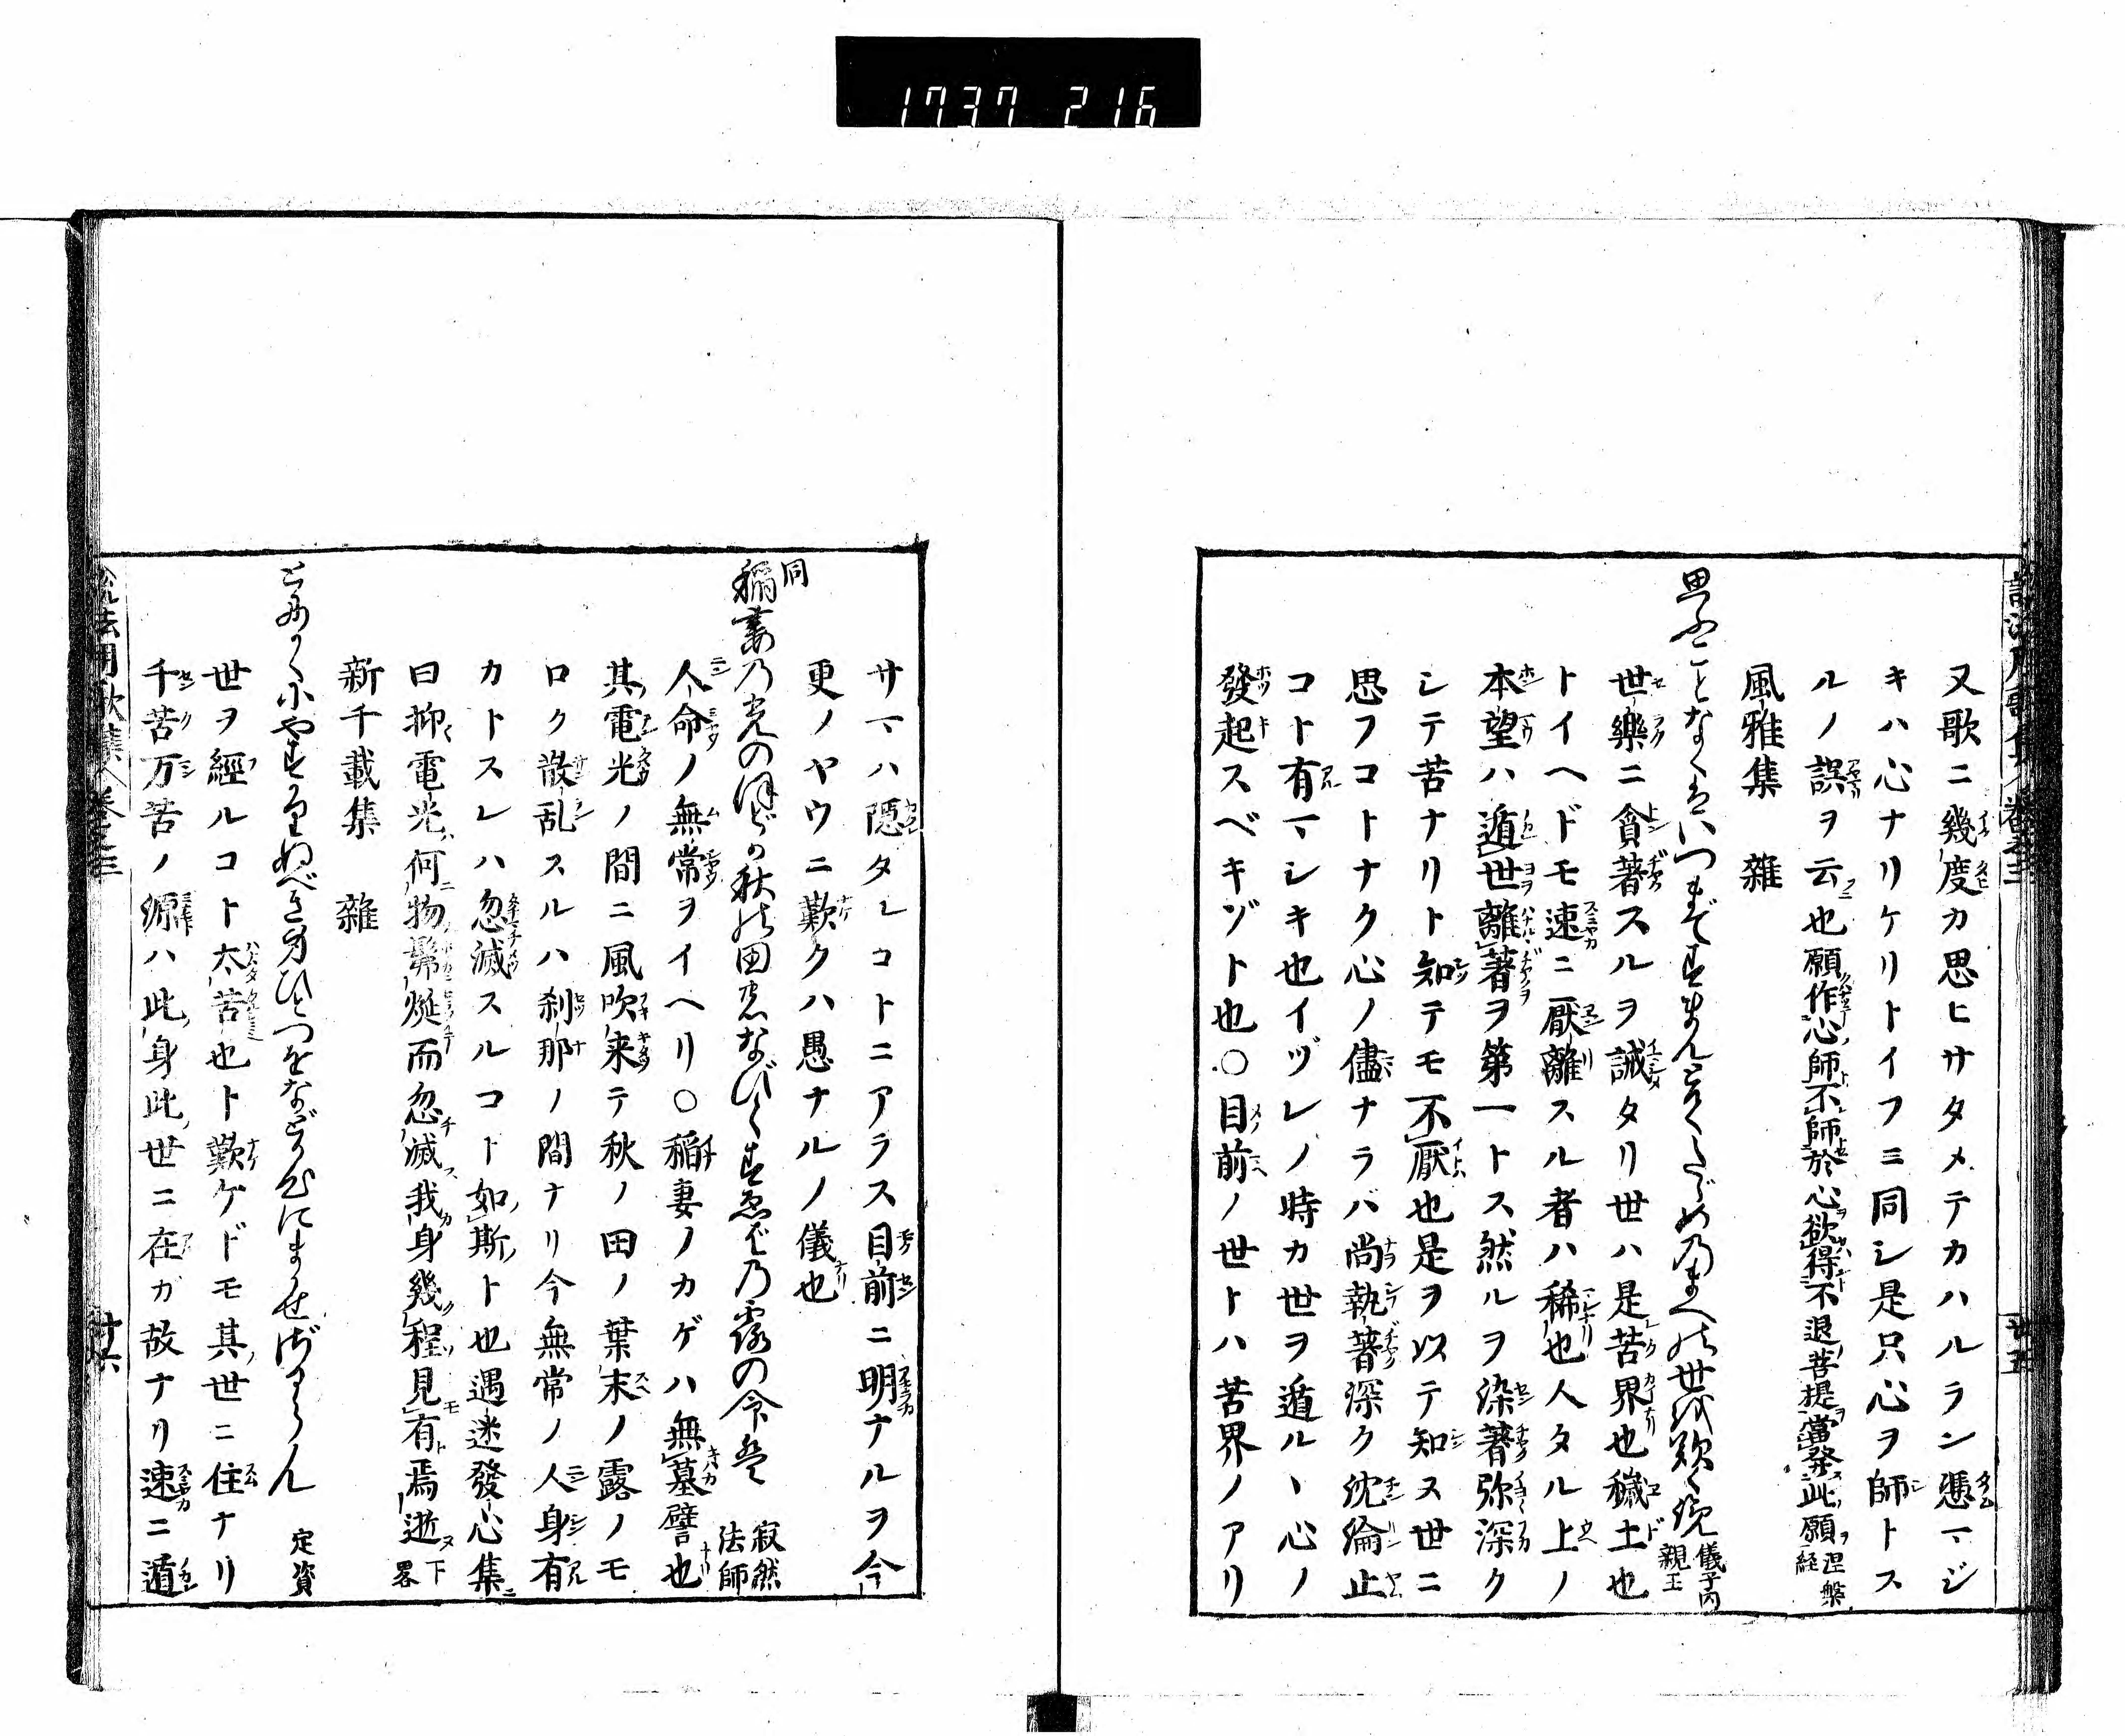 1737 216
又歌ニ幾度カ思ヒサタメテカハルラン憑マジ
キハ心ナリケリトイフニ同シ是只心ヲ師トス
ルノ誤ヲ云也願作心師不師於心欲得不退菩提當發此願涅槃経
風雅集 雜
思ふことなくていつまですまんとてくためのまへの世を歎く 儀子内親王
世樂ニ貪著スルヲ誡タリ世ハ是苦界也穢土也
トイヘドモ速ニ厭離スル者ハ稀也人タル上ノ
本望ハ遁世離著ヲ第一トス然ルヲ染著弥深ク
シテ苦ナリト知テモ不厭也是ヲ以テ知ヌ世ニ
思フコトナク心ノ儘ナラバ尚執著深ク沈淪止
コト有マシキ也イヅレノ時カ世ヲ遁ルヽ心ノ
發起スベキゾト也○目前ノ世トハ苦界ノアリ
廿五
サマハ隱タレコトニアラス目前ニ明ナルヲ今
更ノヤウニ歎クハ愚ナルノ儀也
同
稲妻の光のほどか秋の田のなびくすゑばの露の命は 寂然法師
人命ノ無常ヲイヘリ○稲妻ノカゲハ無墓譬也
其電光ノ間ニ風吹来テ秋ノ田ノ葉末ノ露ノモ
ロク散乱スルハ刹那ノ間ナリ今無常ノ人身有
カトスレハ忽滅スルコト如斯ト也遇迷發心集
曰抑電光何物髴㷼而忽滅我身幾程見有焉逝下畧
新千載集 雜
とにかくにやすかりぬべき身ひとつをなど心にまかせざるらん 定資
世ヲ經ルコト太苦也ト歎ゲドモ其世ニ住ナリ
千苦万苦ノ源ハ此身此世ニ在ガ故ナリ速ニ遁
説法用歌集 卷之三
廿六